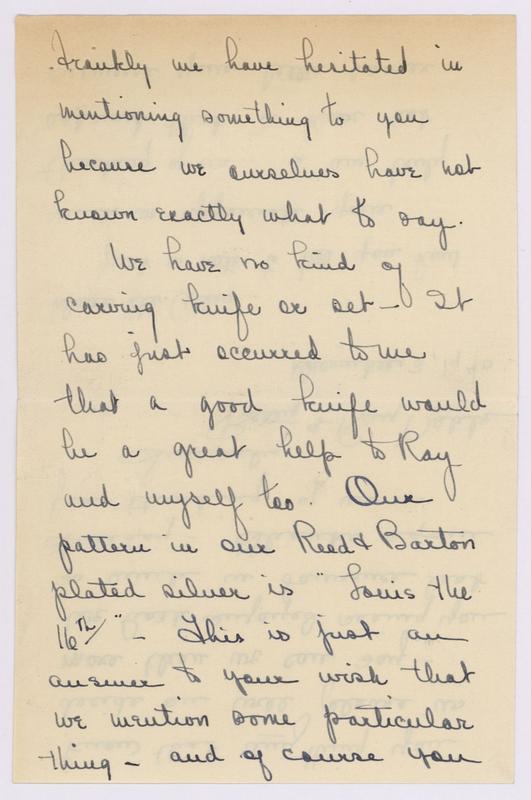 Frankly we have hesitated in
mentioning something to you
because we ourselves have not
known exactly what to say.
We have no kind of
carving knife or set - It
has just occurred to me
that a good knife would
be a great help to Ray
and myself too. Our
pattern in our Reed & Barton
plated silver is "Louis the
16th" - This is just an
answer to your wish that
we mention some particular
thing - and of course you